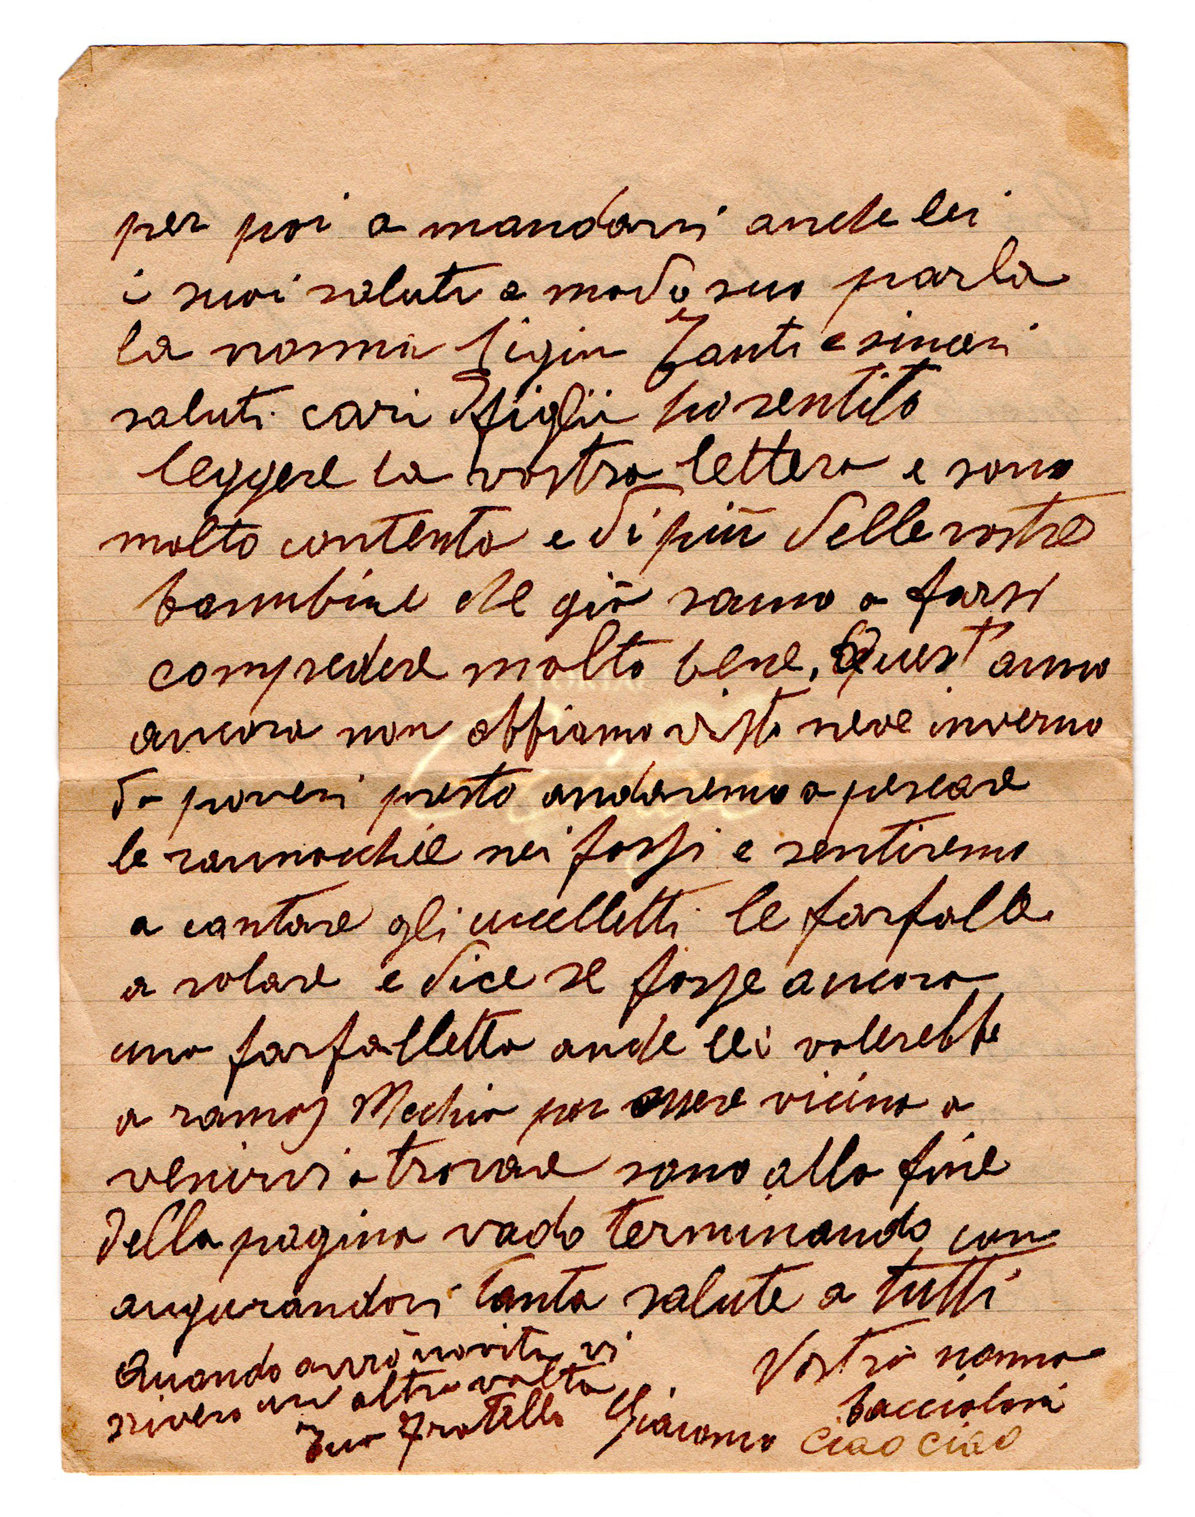 per poi a mandarvi anche lei
i suoi saluti a modo suo parla
la nonna Gigin Tanti e sinceri
saluti cari figlii ho sentito
leggere la vostra lettera e sono
molto contenta e di più delle vostre
bambine che già sanno a farsi
compredere molto bene, Quest' anno
ancora non abbiamo visto neve inverno
da poveri presto andaremo a pescare
le rannocchie nei fossi e sentiremo
a cantare gli uccelletti le farfalle
a volare e dice se fosse ancora
una farfalletta anche lei volerebbe
a ramos Mechia per essere vicino a
venirvi a trovare sono alla fine
della pagina vado terminando con
augurandovi tanta salute a tutti
Quando avrò novità vi
scivero un' altra volta
Tuo Fratello Giacomo
Vostra nonna
baccioloni
ciao ciao